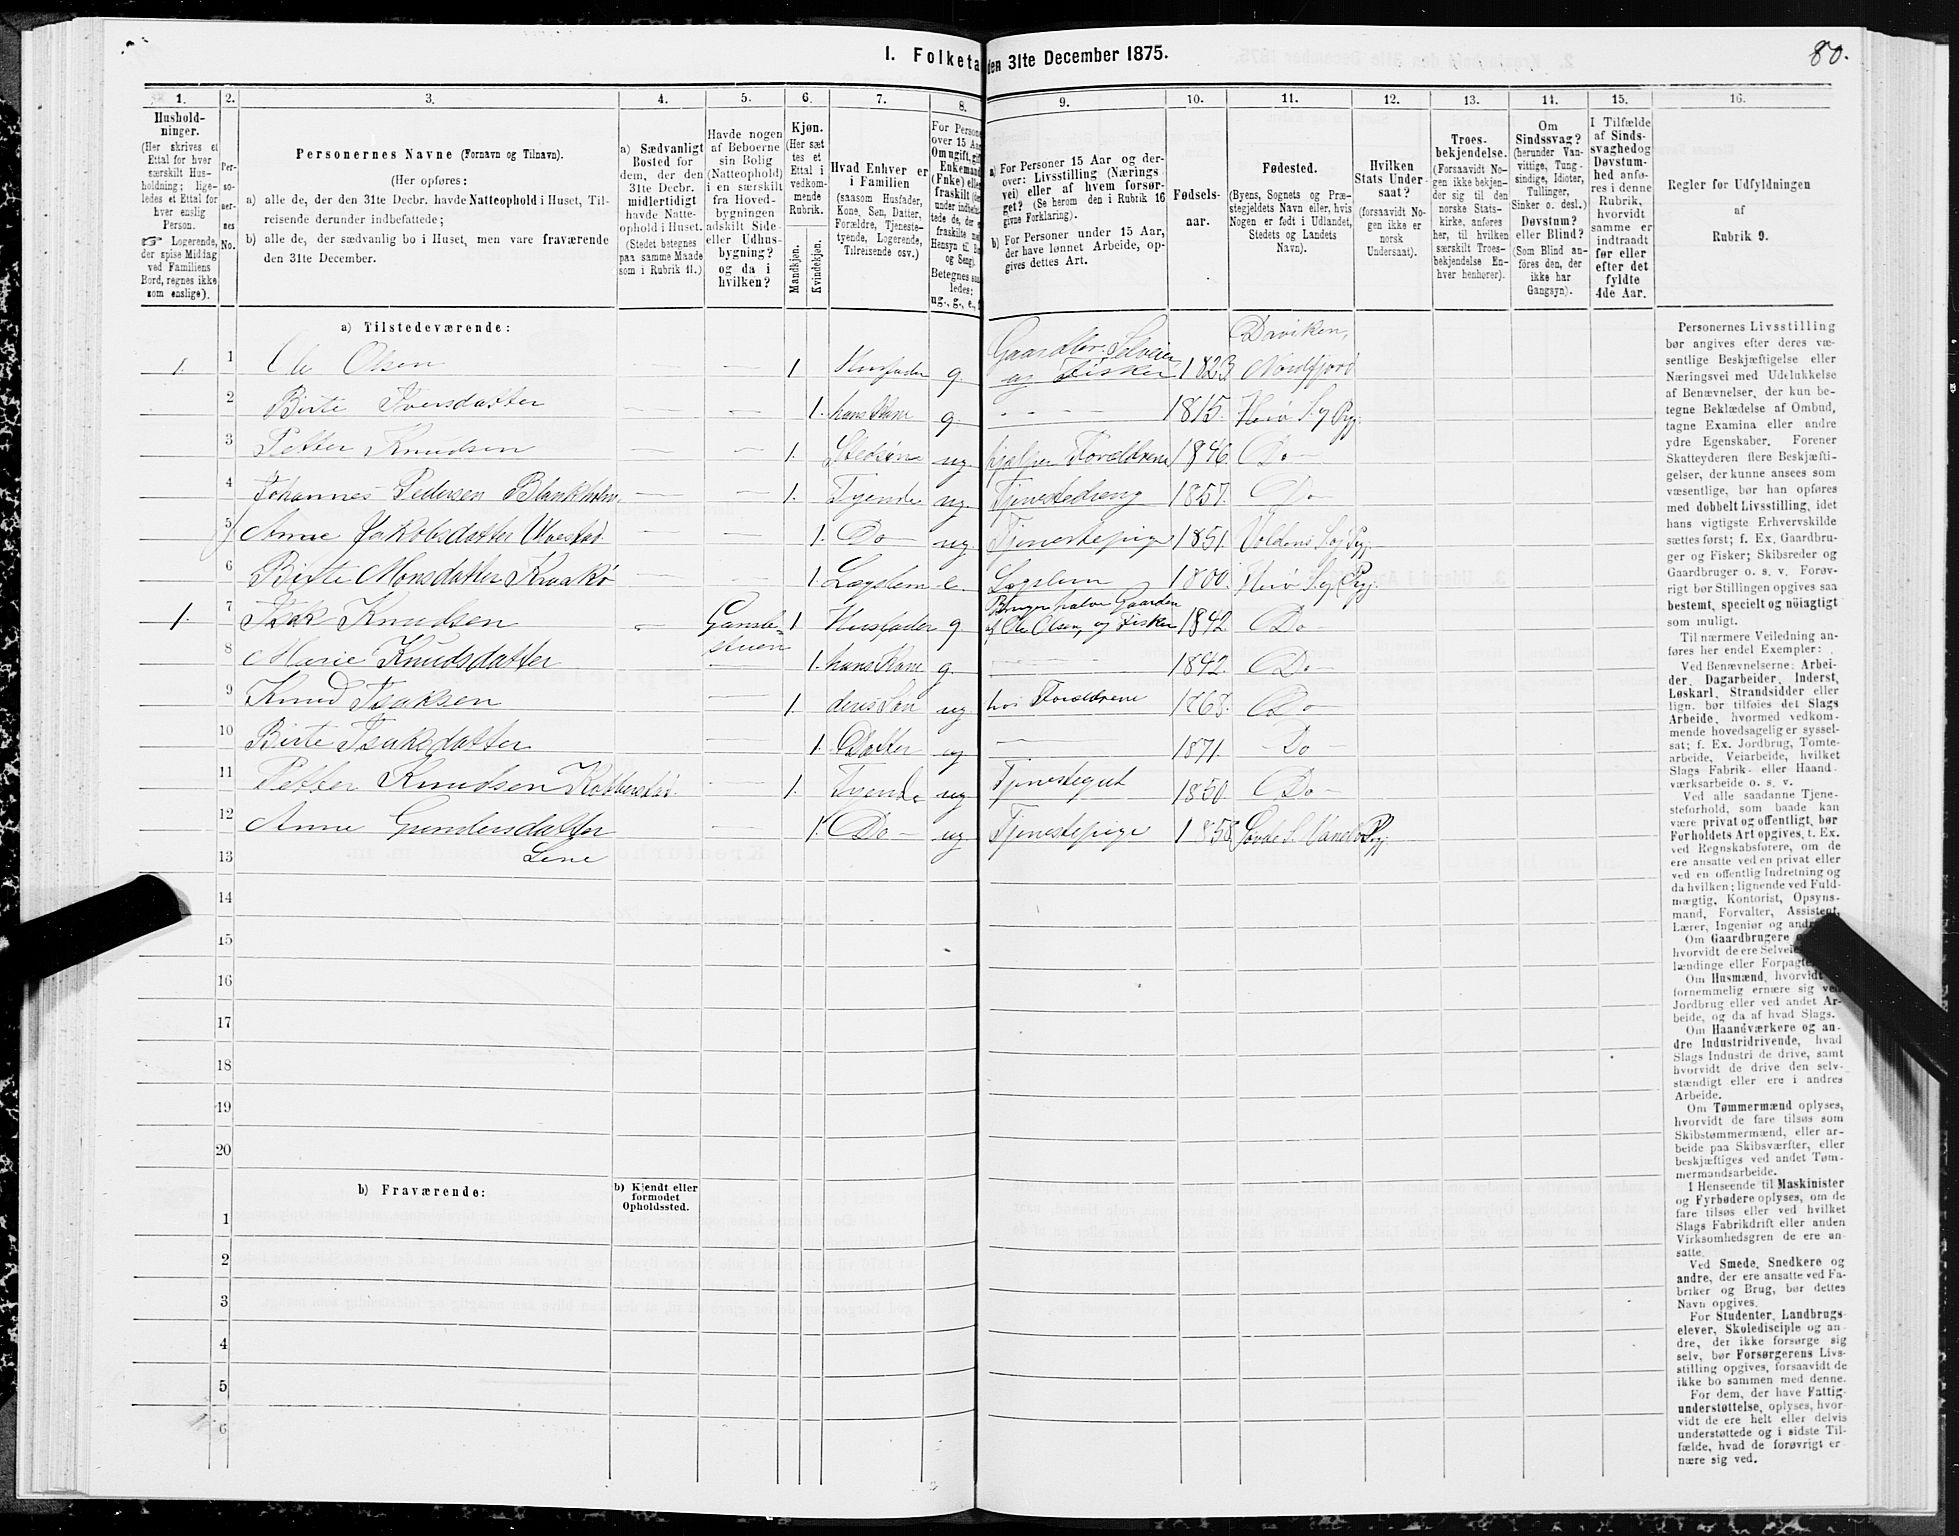 80.
I. Folketa den 31te December 1875.
1. 2. 3. 4. 5. 6. 7. 8. 9. 10. 11. 12. 13. 14. 15. 16.
Hushold-
ninger.
(Her skrives et
Ettal for hver
særskilt Hus-
holdning; lige-
ledes et Ettal for
hver enslig
Person.
☞ Logerende,
der spise Middag
ved Familiens
Bord, regnes ikke
som enslige).
Per-
so-
ner-
nes
No.
Personernes Navne (Fornavn og Tilnavn).
(Her opføres:
a) alle de, der den 31te Decbr. havde Natteophold i Huset, Til-
reisende derunder indbefattede;
b) alle de, der sædvanlig bo i Huset, men vare fraværende
den 31te December.
a) Sædvanligt
Bosted for
dem, der den
31te Decbr.
midlertidigt
havde Natte-
ophold i Huset.
(Stedet betegnes
paa samme Maade
som i Rubrik 11.)
Havde nogen
af Beboerne
sin Bolig
(Natteophold)
i en særskilt
fra Hoved-
bygningen
adskilt Side-
eller Udhus-
bygning?
og da i
hvilken?
Kjøn.
(Her sæt
tes et
Ettal i
vedkom-
mende
Rubrik.
Mandkjøn.
Kvindekjøn.
Hvad Enhver er
i Familien
(saasom Husfader,
Kone, Søn, Datter,
Forældre, Tjeneste-
tyende, Logerende,
Tilreisende osv.)
For Persone
over 15 Aar
Om ugift, gift
Enkemand
(Enke) eller
fraskilt
Betegnes saa
ledes:
ug., g., e.,
a) For Personer 15 Aar og der-
over: Livsstilling (Nærings
vei) eller af hvem forsør-
get? (Se herom den i Rubrik 16
givne Forklaring).
b) For Personer under 15 Aar,
der have lønnet Arbeide, op-
gives dettes Art.
Fødsels-
aar.
Fødested.
(Byens, Sognets og Præ-
stegjeldets Navn eller, hvis
Nogen er født i Udlandet,
Stedets og Landets
Navn).
Hvilken
Stats Under-
saat?
(forsaavidt No-
gen ikke er
norsk
Undersaat).
Troes-
bekjendelse.
(Forsaavidt No-
gen ikke bekjen-
der sig til den
norske Stats-
kirke, anføres
her, til hvilken
særskilt Troes-
bekjendelse En-
hver henhører).
Om
Sindssvag?
(herunder Van-
vittige, Tung-
sindige, Idioter,
Tullinger,
Sinker o. desl.)
Døvstum?
eller Blind?
(Som Blind an-
føres den, der
ikke har
Gangsyn).
I Tilfælde
af Sinds-
svaghed og
Døvstum-
hed anfø-
res i denne
Rubrik,
hvorvidt
samme er
indtraadt
før eller
efter det
fyldte
4de Aar.
Regler for Udfyldningen
af
Rubrik 9.
a) Tilstedeværende:
1. 1 Ole Olsen — — 1 Husfader g Gaardbr. Selveier og Fisker 1823 Daviken, Nordfjord
2 Birte Iversdatter — — 1. hans Kone g - - - - 1815. Herø S. g Prgj.
3 Petter Knudsen — — 1. Stedsøn ug. hjælper Forældrene 1846 Do —
4 Johannes Pedersen Blankholm — — 1. Tyende ug. Tjenestedreng 1857. Do —
5 Anne Jakobsdatter — — 1. Do — ug Tjenestepige 1851. Voldens Prgj.
6 Birte Monsdatter — — 1. Lægslem e. Lægslem 1800. Herø S. g Prgj.
1. 7 Isak Knudsen — 1 Husfader g Bruger halve Gaarden af Ole Olsen, og Fisker 1842 Do
8 Marie Knudsdatter — 1. hans Kone g. 1842. Do —
9 Knud Isaksen — 1. deres Søn ug hos Forældrene 1868. Do
10 Birte Isaksdatter — 1. Datter ug — 1871. - Do -
11 Petter Knudsen — 1. Tyende ug Tjenestegut 1850 Do —
12 Anne Gundersdatter — 1. Do — ug Tjenestepige 1858
13 Lene
14
15
16
17
18
19
20
b) Fraværende:
b) Kjendt eller
formodet
Opholdssted.
1
2
3
4
5
6
Personernes Livsstilling
bør angives efter deres væ-
sentlige Beskjæftigelse eller
Næringsvei med Udelukkelse
af Benævnelser, der kun be-
tegne Beklædelse af Ombud,
tagne Examina eller andre
ydre Egenskaber. Forener
Skatteyderen flere Beskjæfti-
gelser, der kunne ansees som
væsentlige, bør han opføres
med dobbelt Livsstilling, idet
hans vigtigste Erhvervskilde
sættes først; f. Ex. Gaardbru-
ger og Fisker; Skibsreder og
Gaardbruger o. s. v. Forøv-
rigt bør Stillingen opgives saa
bestemt, specielt og nøiagtigt
som muligt.
Til nærmere Veiledning an-
føres her endel Exempler:
Ved Benævnelserne: Arbei-
der, Dagarbeider, Inderst,
Løskarl, Strandsidder eller
lign. bør tilføies det Slags
Arbeide, hvormed vedkom-
mende hovedsagelig er syssel-
sat; f. Ex. Jordbrug, Tomte-
arbeide, Veiarbeide, hvilket
Slags Fabrik- eller Haand-
værksarbeide o. s. v.
Ved alle saadanne Tjene-
steforhold, som baade kan
være privat og offentligt, bør
Forholdets Art opgives, t. Ex.
ved Regnskabsførere, om de
ere ansatte ved en privat eller
ved en offentlig Indretning og
da hvilken; lignende ved Fuld-
mægtig, Kontorist, Opsyns-
mand, Forvalter, Assistent,
Lærer, Ingeniør og andre
Om Gaardbrugere
hvorvidt de ere Selveie
lændinge eller Forpagte
Om Husmænd, hvorvidt
fornemmelig ernære sig ved
Jordbrug eller ved andet Ar-
beide, og da af hvad Slags.
Om Haandværkere og an-
dre Industridrivende, hvad
Slags Industri de drive, samt
hvorvidt de drive den selv-
stændigt eller ere i andres
Arbeide.
Om Tømmermænd oplyses,
hvorvidt de fare tilsøs som
Skibstømmermænd, eller ar-
beide paa Skibsværfter, eller
beskjæftiges ved andet Tøm-
mermandsarbeide.
I Henseende til Maskinister
og Fyrbødere oplyses, om de
fare tilsøs eller ved hvilket
Slags Fabrikdrift eller anden
Virksomhedsgren de ere an-
satte.
Ved Smede, Snedkere og
andre, der ere ansatte ved Fa-
briker og Brug, bør dettes
Navn opgives.
For Studenter, Landbrugs-
elever, Skoledisciple og an-
dre, der ikke forsørge sig
selv, bør Forsørgerens Livs-
stilling opgives, forsaavidt de
ikke bo sammen med denne.
For dem, der have Fattig-
understøttelse, oplyses, hvor-
vidt de ere helt eller delvis
understøttede og i sidste Til-
fælde, hvad de forøvrigt er-
nære sig ved.